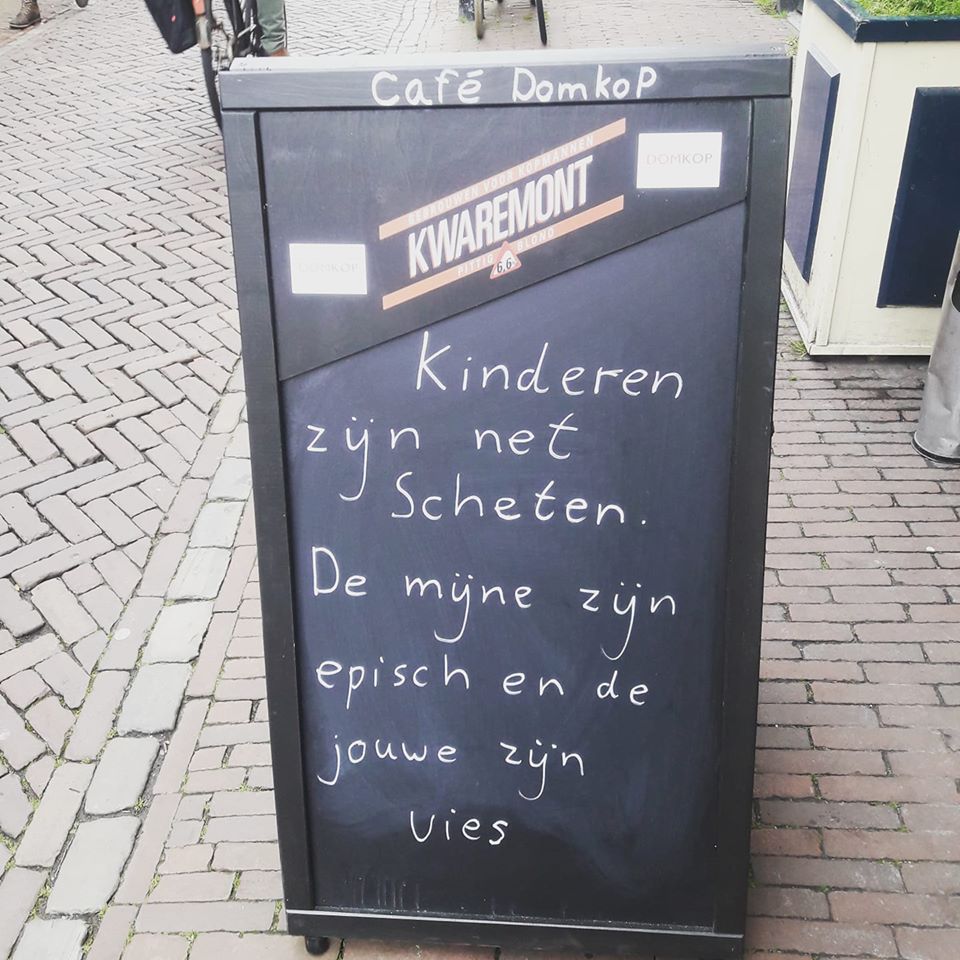 Café Domkop
DOMKOP
GEBROUWEN VOOR KOPMANNEN
KWAREMONT
PITTIG 6,6 BLOND
DOMKOP
Kinderen
zijn net
Scheten.
De mijne zijn
episch en de
jouwe zijn
vies